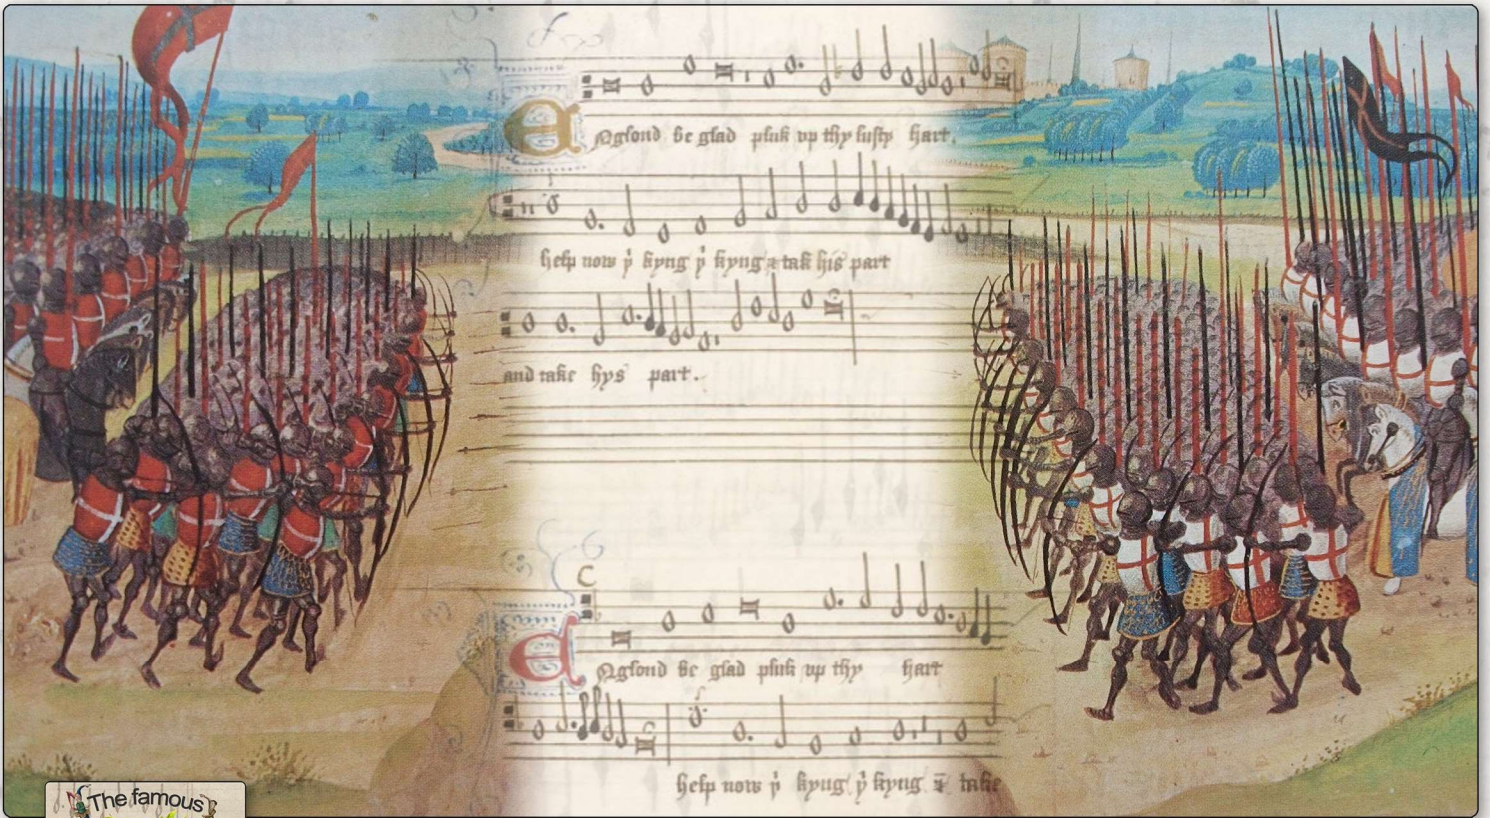 England be glad pluk vp thy lusty hart.
help now yͤ kyng yͤ kyng & tak his part
and take hys part.
C
England be glad pluk vp thy hart
help now yͤ kyng yͤ kyng & take
The famous